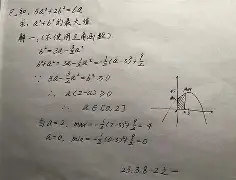 已知, 3a²+2b²=6a
求: a²+b²的最大值
解一: (不使用三角函数)
b²=3a-\frac{3}{2}a²
b²+a²=3a-\frac{1}{2}a²=-\frac{1}{2}(a-3)²+\frac{9}{2}
∵ 3a-\frac{3}{2}a²=b²≥0
∴ a(2-a)≥0
∴ a∈[0,2]
当a=2, max=-\frac{1}{2}(2-3)²+\frac{9}{2}=4
a=0, min=-\frac{1}{2}(0-3)²+\frac{9}{2}=0
23.3.8-2